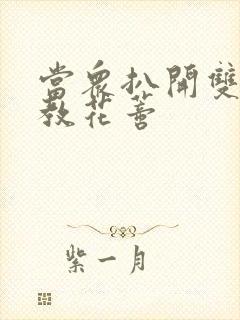 當眾扒開雙
教花蕾
紫一月